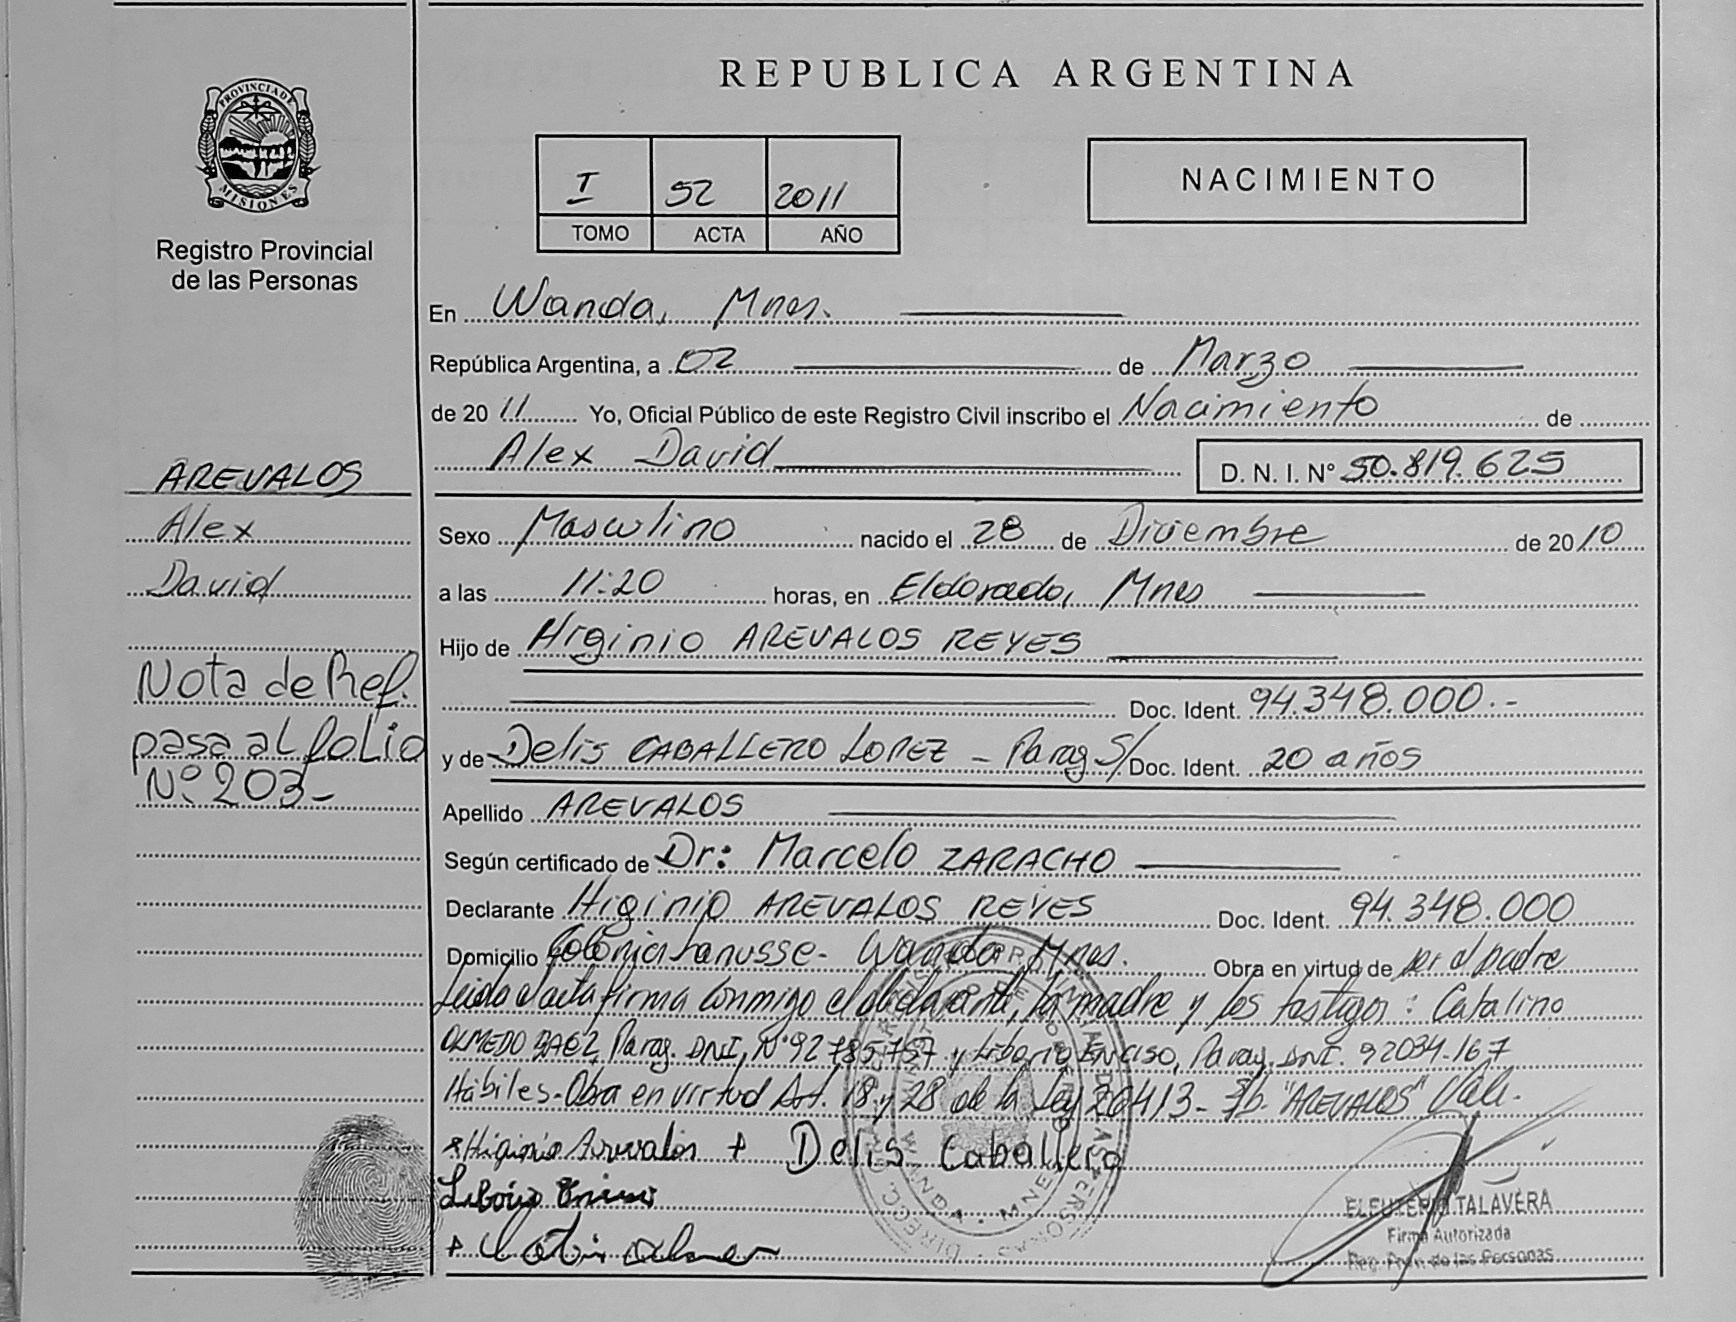 REPUBLICA ARGENTINA
PROVINCIA DE
MISIONES
Registro Provincial
de las Personas
I 52 2011
TOMO ACTA AÑO
NACIMIENTO
En Wanda, Mnes.
República Argentina, a 02 de Marzo
de 2011 Yo, Oficial Público de este Registro Civil inscribo el Nacimiento de
Alex David D. N. I. Nº 50.819.625
AREVALOS
Alex
David
Nota de Ref.
pasa al folio
Nº 203-
Sexo Masculino nacido el 28 de Diciembre de 2010
a las 11:20 horas, en Eldorado, Mnes
Hijo de Higinio AREVALOS REYES
Doc. Ident. 94.348.000.-
y de Delis CABALLERO LOPEZ - Parag S/ Doc. Ident. 20 años
Apellido AREVALOS
Según certificado de Dr: Marcelo ZARACHO
Declarante Higinio AREVALOS REYES Doc. Ident. 94.348.000
Domicilio Colonia Lanusse- Wanda, Mnes. Obra en virtud de ser el padre
Leida el acta firma conmigo el declarante, la madre y los testigos: Catalino
OLMEDO BAEZ, Parag. DNI, Nº 92785757 y Liborio ENCISO, Parag. DNI. 92034.167
Hábiles-Obra en virtud Art. 18 y 28 de la Ley 26413- "AREVALOS" Vale.
Higinio Arevalos + Delis Caballero
Liborio Enciso
ELEUTERIO TALAVERA
Firma Autorizada
Reg. Prov. de las Personas